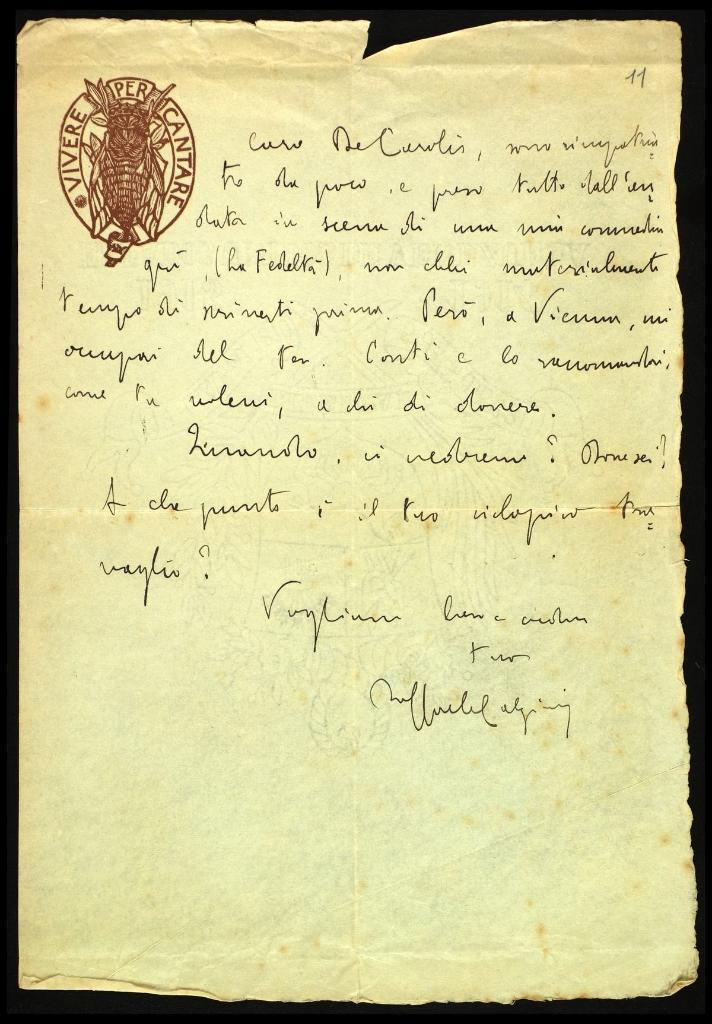 VIVERE PER CANTARE
RC
11
Caro De Carolis, sono rimpatria=
to da poco, e preso tutto dall'an=
data in scena di una mia commedia
qui, (La Fedeltà), non ebbi materialmente
tempo di scriverti prima. Però, a Vienna, mi
occupai del ten. Conti e lo raccomandai,
come tu volevi, a chi di dovere.
Quando, ci vedremo? Dove sei?
A che punto è il tuo ciclopico tra=
vaglio?
Vogliami bene e credimi
tuo
Raffaele Calzini